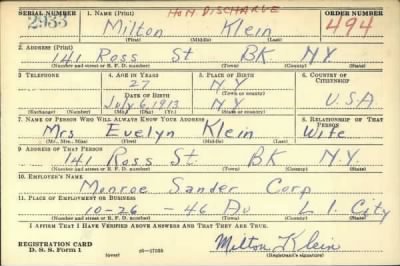 HON. DISCHARGE
SERIAL NUMBER 1. NAME (Print) ORDER NUMBER
2933 Milton Klein 494
(First) (Middle) (Last)
2. ADDRESS (Print)
141 Ross St BK N.Y.
(Number and street or R. F. D. number) (Town) (County) (State)
3. TELEPHONE 4. AGE IN YEARS 5. PLACE OF BIRTH 6. COUNTRY OF CITIZENSHIP
27 N.Y.
DATE OF BIRTH (Town or county)
July 6, 1913 N.Y. U.S.A
(Exchange) (Number) (Mo.) (Day) (Yr.) (State or country)
7. NAME OF PERSON WHO WILL ALWAYS KNOW YOUR ADDRESS 8. RELATIONSHIP OF THAT PERSON
Mrs Evelyn Klein Wife
(Mr., Mrs., Miss) (First) (Middle) (Last)
9. ADDRESS OF THAT PERSON
141 Ross St. BK N.Y.
(Number and street or R. F. D. number) (Town) (County) (State)
10. EMPLOYER'S NAME
Monroe Sander Corp
11. PLACE OF EMPLOYMENT OR BUSINESS
10-26 - 46 Av L I. City
(Number and street or R. F. D. number) (Town) (County) (State)
I AFFIRM THAT I HAVE VERIFIED ABOVE ANSWERS AND THAT THEY ARE TRUE.
REGISTRATION CARD
D. S. S. Form 1 (over) 16-17105 Milton Klein
(Registrant's signature)